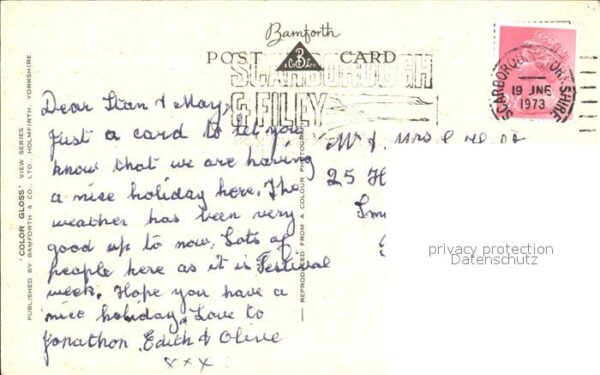 Bamforth
POST CARD
B
SCARBOROUGH
& FILEY
SCARBOROUGH YORKSHIRE
19 JNE
1973
Dear Stan & May,
Just a card to let you
know that we are having
a nice holiday here. The
weather has been very
good up to now. Lots of
people here as it is Festival
week. Hope you have a
nice holiday. Love to
Jonathon. Edith & Olive
xxx
Mr & Mrs
25 H
privacy protection
Datenschutz
'COLOR GLOSS' VIEW SERIES
PUBLISHED BY BAMFORTH & CO., LTD., HOLMFIRTH, YORKSHIRE
REPRODUCED FROM A COLOUR PHOTOGRAPH